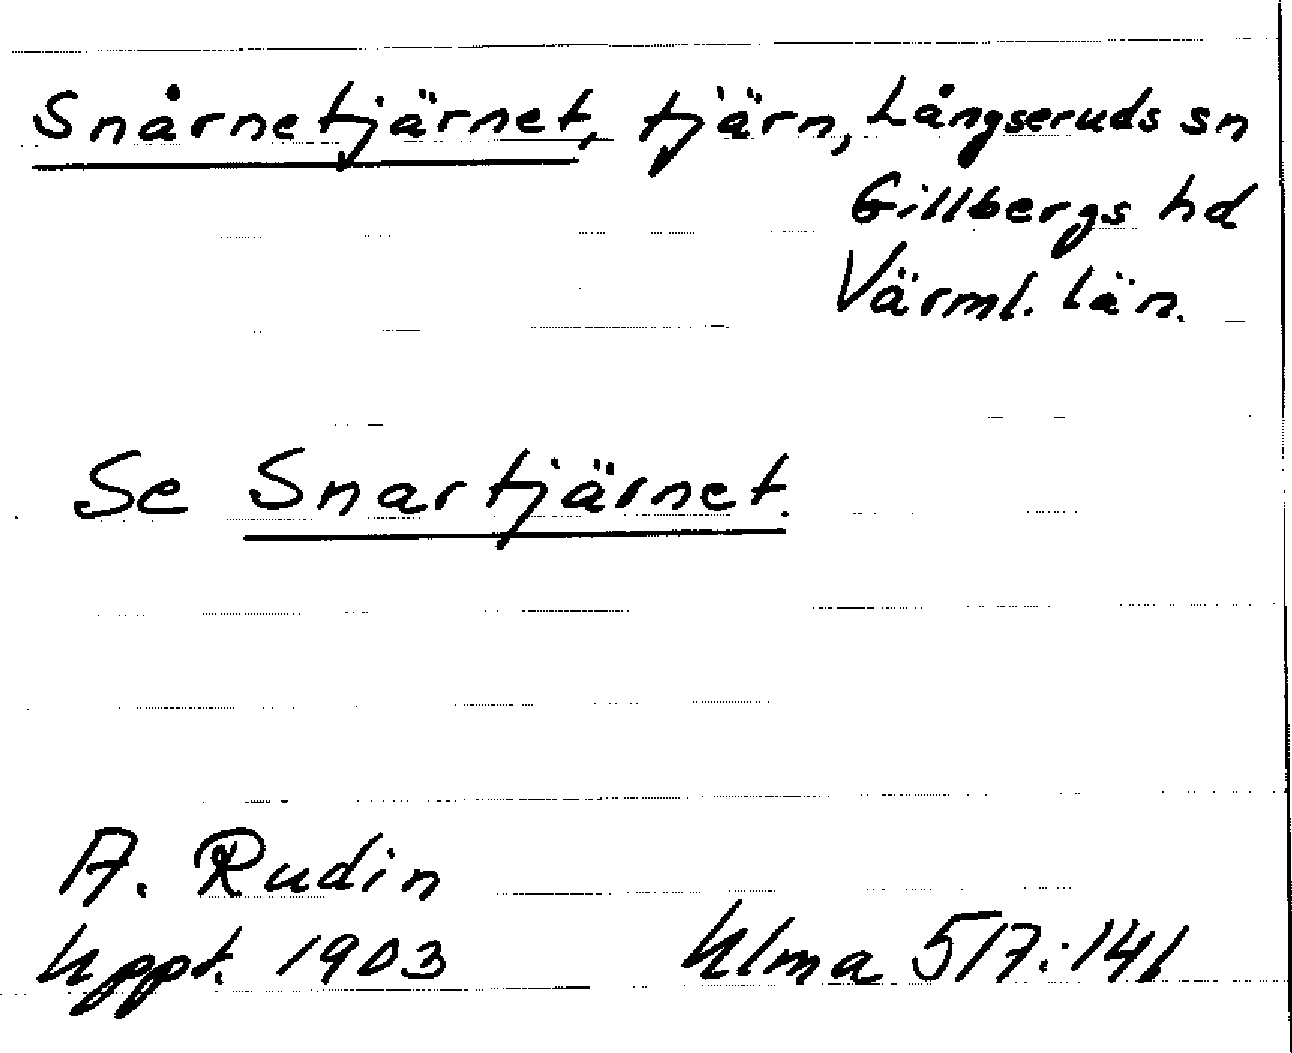 Snårnetjärnet, tjärn, Långseruds sn
Gillbergs hd
Värml. län.
Se Snartjärnet.
A. Rudin
Uppt. 1903 Ulma 517:141